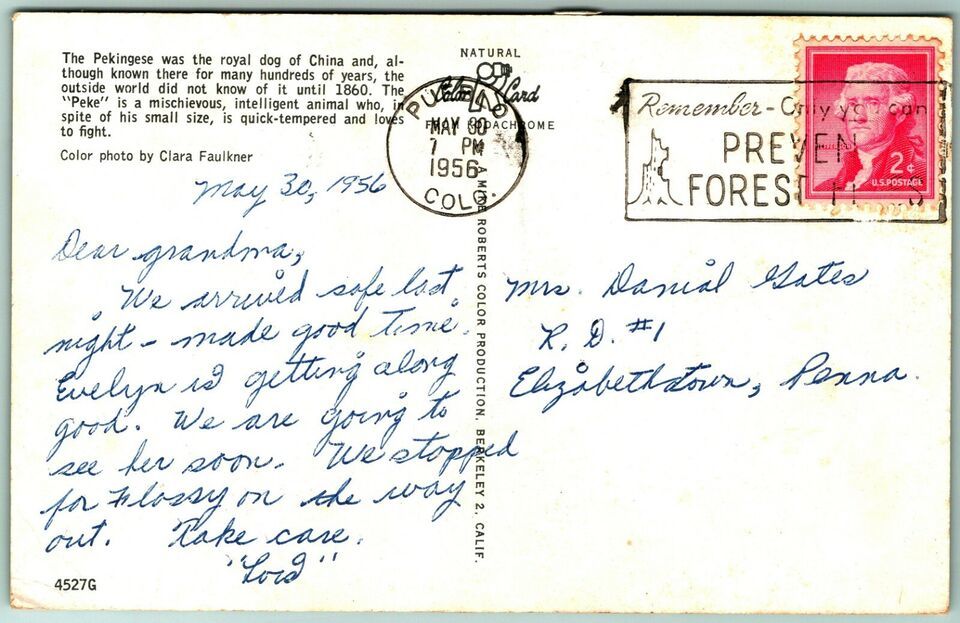 The Pekingese was the royal dog of China and, al-
though known there for many hundreds of years, the
outside world did not know of it until 1860. The
"Peke" is a mischievous, intelligent animal who, in
spite of his small size, is quick-tempered and loves
to fight.
Color photo by Clara Faulkner
May 30, 1956
Dear grandma,
We arrived safe last
night - made good time.
Evelyn is getting along
good. We are going to
see her soon. We stopped
for Flossy on the way
out. Take care.
"Lois"
4527G
NATURAL
Color Card
FROM KODACHROME
A MIKE ROBERTS COLOR PRODUCTION, BERKELEY 2, CALIF.
PUEBLO
MAY 30
7 PM
1956
COLO.
Remember - Only you can
PREVEN
FOREST
2¢
U.S. POSTAGE
Mrs. Danial Gates
R. D. #1
Elizabethstown, Penna.